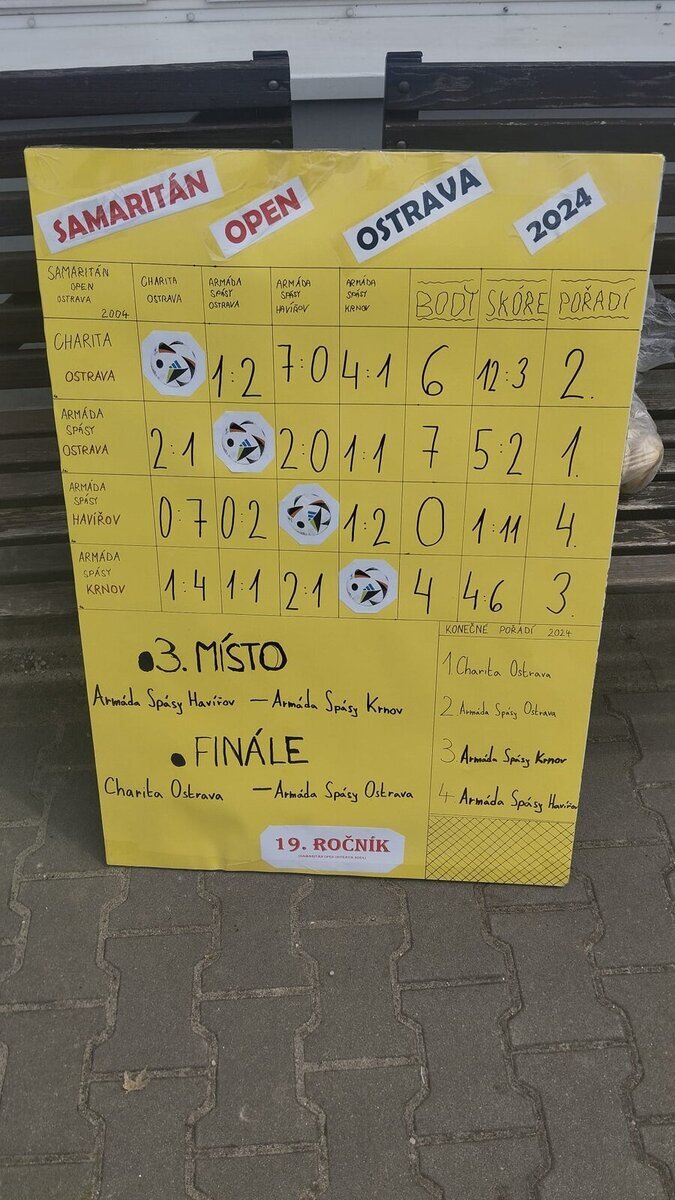 SAMARITÁN OPEN OSTRAVA 2024
SAMARITÁN OPEN OSTRAVA 2004 CHARITA OSTRAVA ARMÁDA SPÁSY OSTRAVA ARMÁDA SPÁSY HAVÍŘOV ARMÁDA SPÁSY KRNOV BODY SKÓRE POŘADÍ
CHARITA OSTRAVA 1:2 7:0 4:1 6 12:3 2.
ARMÁDA SPÁSY OSTRAVA 2:1 2:0 1:1 7 5:2 1.
ARMÁDA SPÁSY HAVÍŘOV 0:7 0:2 1:2 0 1:11 4.
ARMÁDA SPÁSY KRNOV 1:4 1:1 2:1 4 4:6 3.
3. MÍSTO
Armáda Spásy Havířov — Armáda Spásy Krnov
FINÁLE
Charita Ostrava — Armáda Spásy Ostrava
KONEČNÉ POŘADÍ 2024
1. Charita Ostrava
2. Armáda Spásy Ostrava
3. Armáda Spásy Krnov
4. Armáda Spásy Havířov
19. ROČNÍK